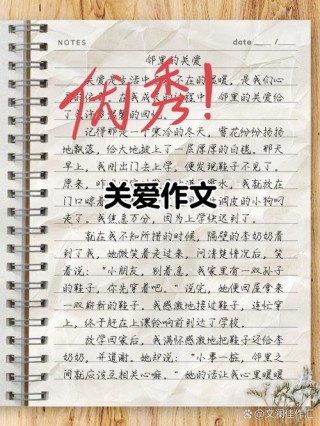 NOTES
date
/
邻里的关爱
关爱是生活中
不在的温暖，是我们心
在我成长的过程中，邻里的关爱给
优秀！
记得那是一个寒冷的冬天，雪花纷纷扬扬
地飘落，给大地披上了一层厚厚的白毯。那天
早上，我刚出门去上学，便发现鞋子不见了。
原来，
水，我就放在
关爱作文
门口晾着
调皮的小狗叼
走了。我焦急万分，因为上学快迟到了。
就在我不知所措的时候，隔壁的李奶奶看
到了我，她微笑着走过来，问清楚情况后，笑
着说：“小朋友，别着急，我家里有一双孙子
的鞋子，你先穿着吧。”说完，她便回屋拿来
一双崭新的鞋子，我感激地接过鞋子，连忙穿
上，终于赶在上课铃响前到达了学校。
放学回家后，我满怀感激地把鞋子还给李
奶奶，并道谢。她却说：“小事一桩，邻里之
间就应该互相关心嘛。”她的话让我心里暖暖
@文澜佳作汇